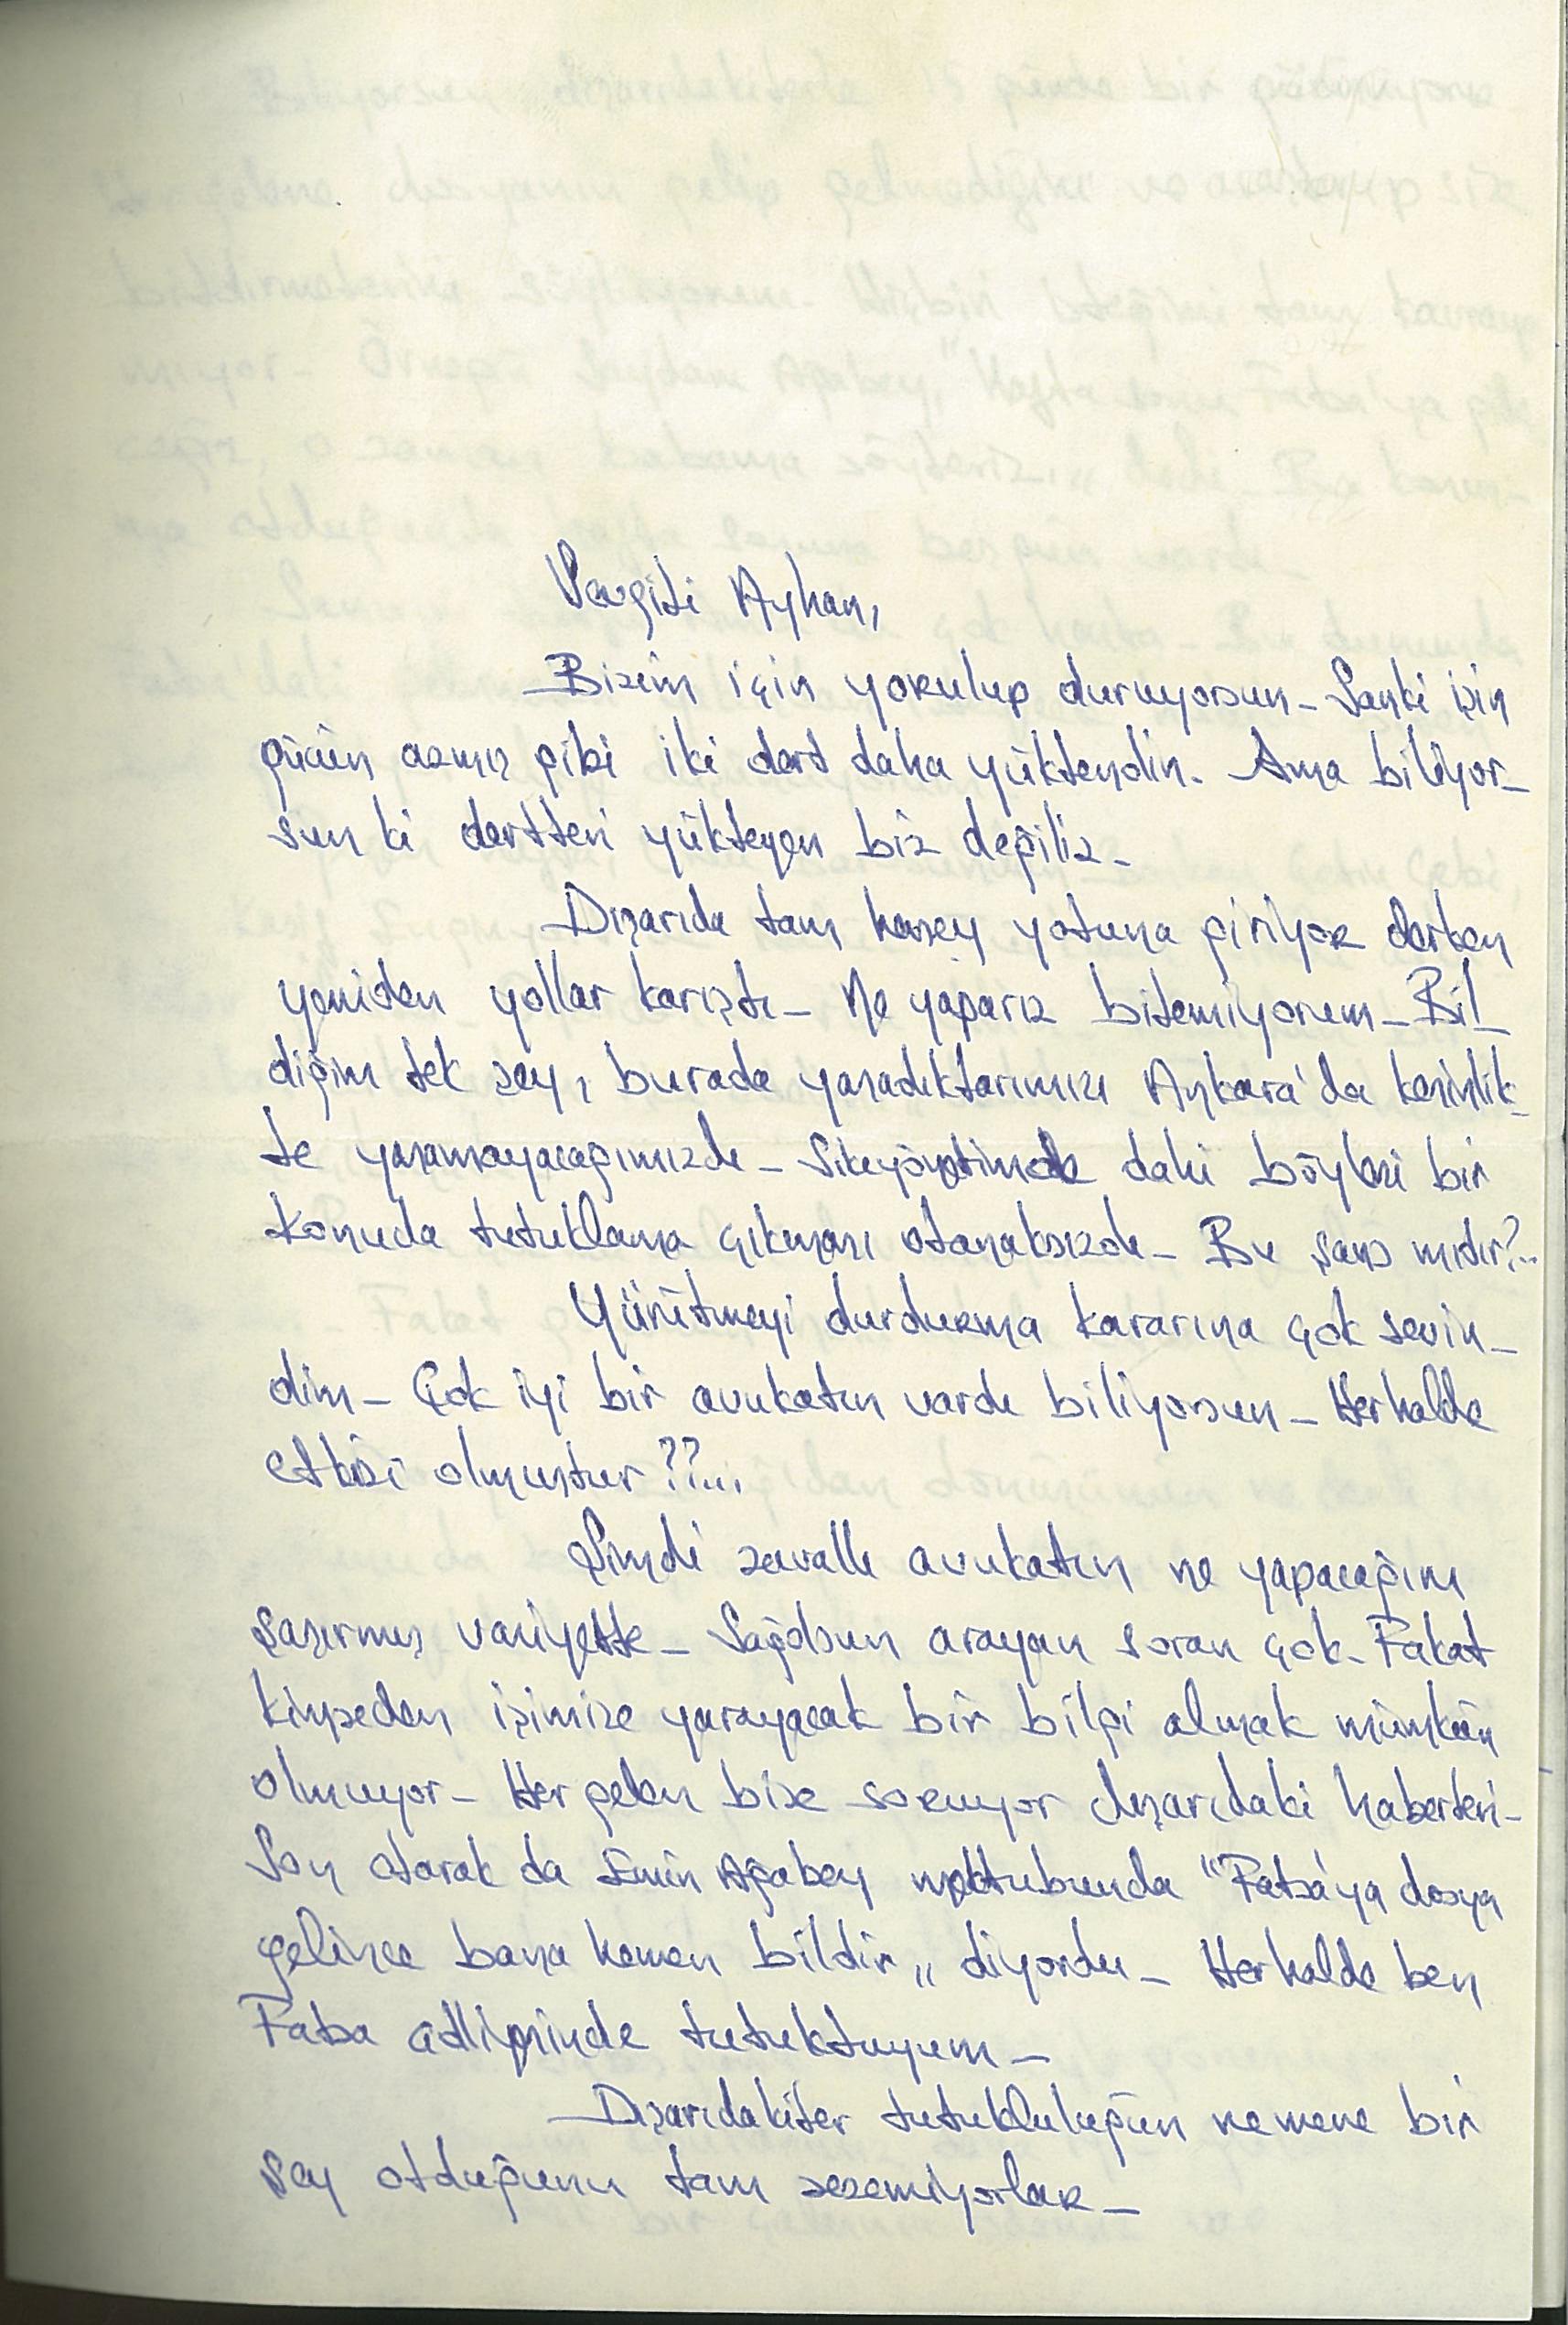 Sevgili Ayhan,
Bizim için yorulup duruyorsun_ Sanki işin
gücün azmış gibi iki dert daha yüklendin. Ama biliyor_
sun ki dertleri yükleyen biz değiliz_
Dışarıda tam herşey yoluna giriyor derken
yeniden yollar karıştı_ Ne yaparız bilemiyorum_ Bil_
diğim tek şey, burada yaşadıklarımızı Ankara'da kesinlik_
le yaşamayacağımızdı_ Sıkıyönetimde dahi böylesi bir
konuda tutuklama çıkması olanaksızdı_ Bu şans mıdır?..
Yürütmeyi durdurma kararına çok sevin_
dim_ Çok iyi bir avukatın vardı biliyorsun_ Herhalde
etkisi olmuştur??...
Şimdi zavallı avukatın ne yapacağını
şaşırmış vaziyette_ Sağolsun arayan soran çok_ Fakat
kimseden işimize yarayacak bir bilgi almak mümkün
olmuyor_ Her gelen bize soruyor dışarıdaki haberleri_
Son olarak da Emin Ağabey mektubunda "Fatsa'ya dosya
gelince bana hemen bildir,, diyordu_ Herhalde ben
Fatsa adliyesinde tutukluyum_
Dışarıdakiler tutukluluğun nemene bir
şey olduğunu tam sezemiyorlar_